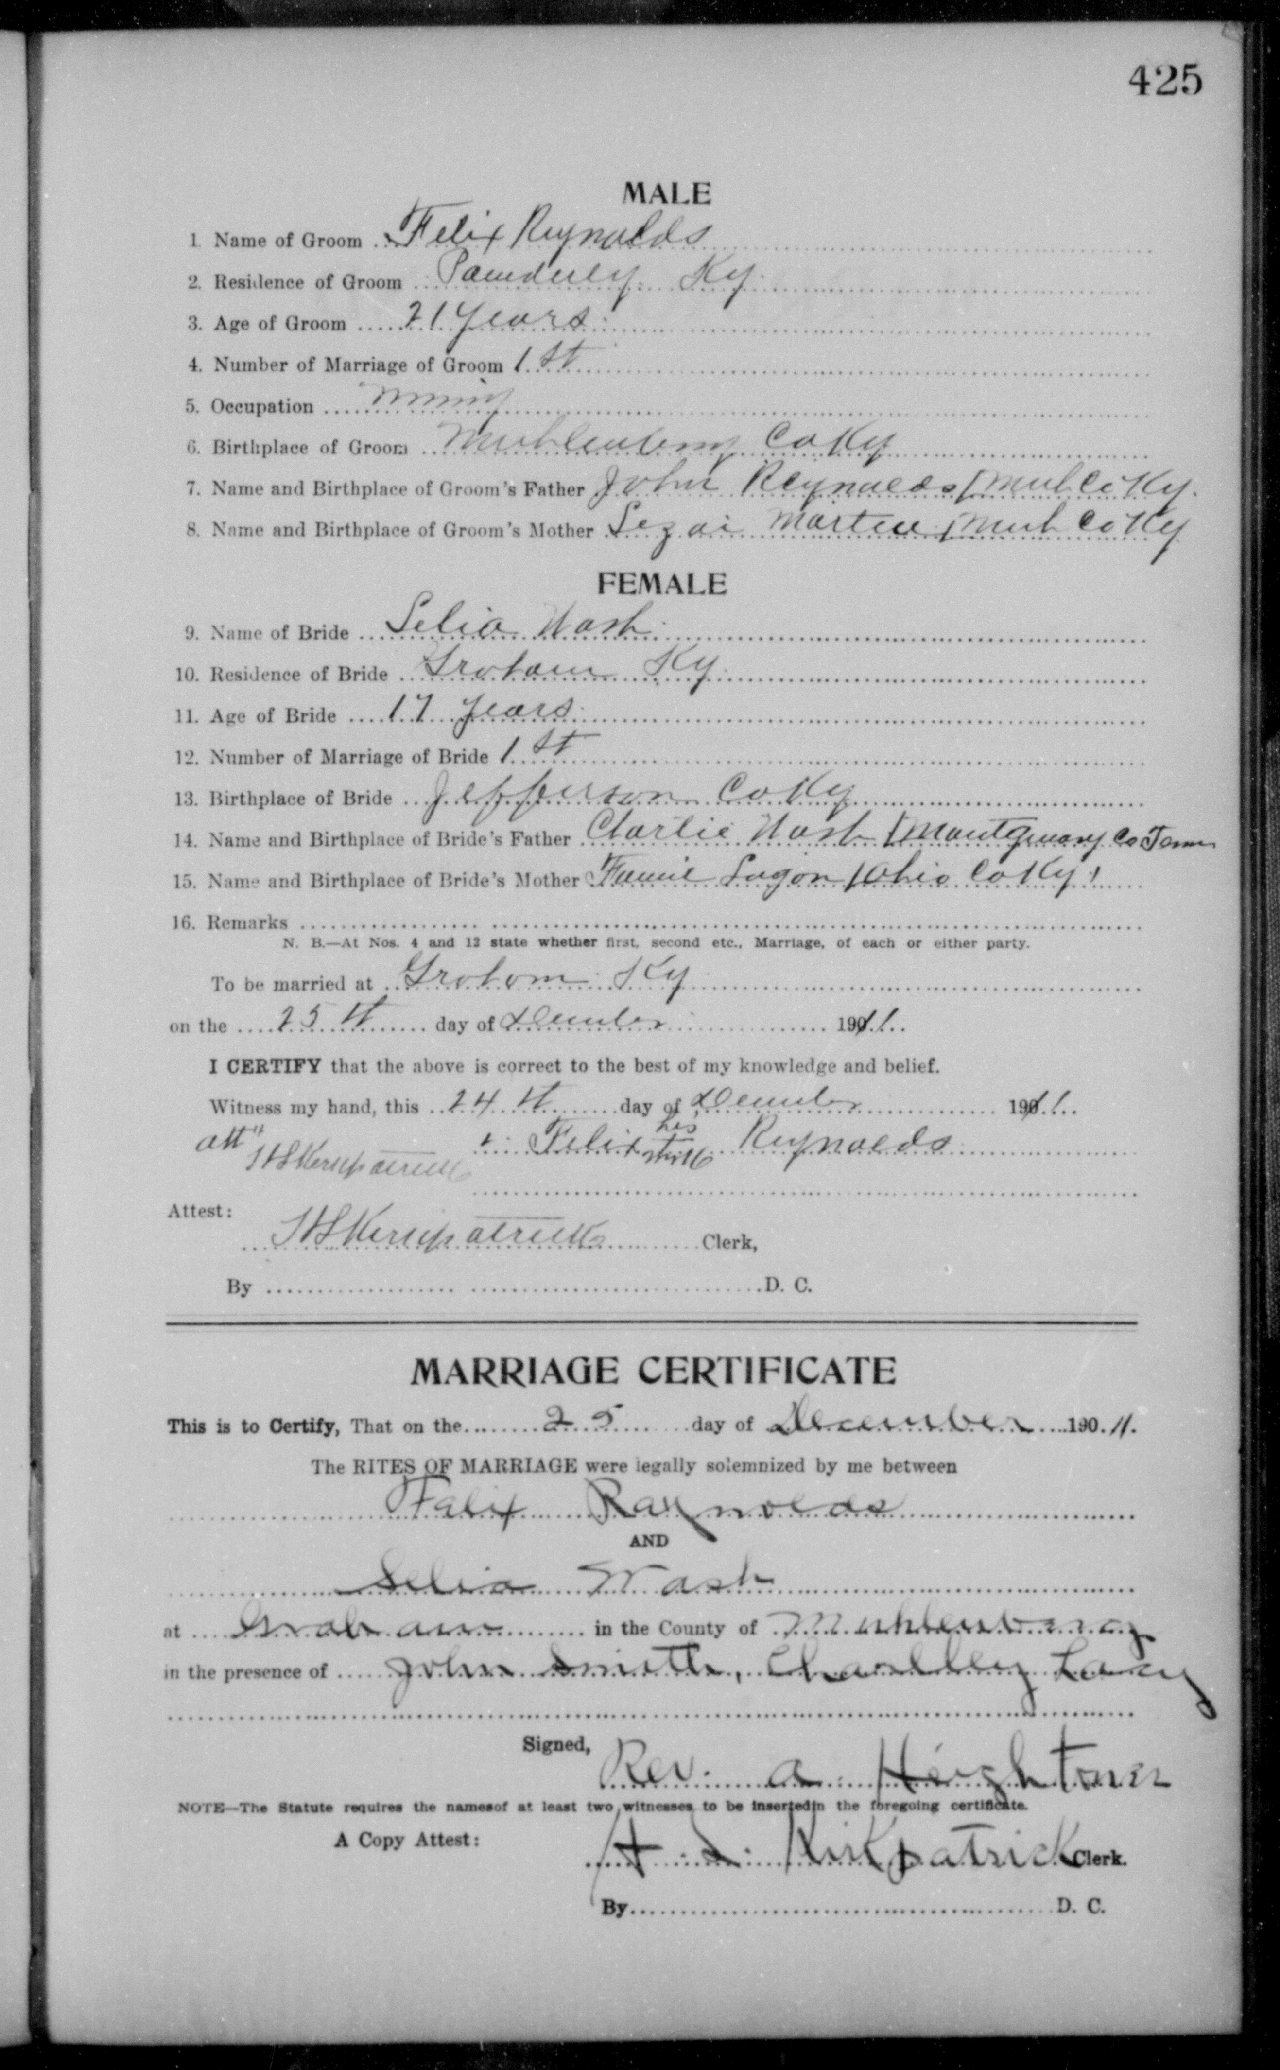 425
MALE
1. Name of Groom Felix Reynolds
2. Residence of Groom Ky.
3. Age of Groom 21 years
4. Number of Marriage of Groom 1 st
5. Occupation mining
6. Birthplace of Groom Muhlenberg Co Ky
7. Name and Birthplace of Groom's Father John Reynolds / Muhl Co Ky.
8. Name and Birthplace of Groom's Mother Martin / Muh Co Ky
FEMALE
9. Name of Bride Selia Wash
10. Residence of Bride Graham Ky
11. Age of Bride 17 years
12. Number of Marriage of Bride 1 st
13. Birthplace of Bride Jefferson Co Ky
14. Name and Birthplace of Bride's Father Charlie Wash / Montgomary Co Tenn
15. Name and Birthplace of Bride's Mother Fannie / Ohio Co Ky
16. Remarks
N. B.—At Nos. 4 and 12 state whether first, second etc., Marriage, of each or either party.
To be married at Graham Ky
on the 25 th day of December 1911
I CERTIFY that the above is correct to the best of my knowledge and belief.
Witness my hand, this 24 th day of December 1911
his
Felix Reynolds
mark
att"
H L Kirkpatrick
Attest:
H L Kirkpatrick Clerk,
By D. C.
MARRIAGE CERTIFICATE
This is to Certify, That on the 25 day of December 190 11.
The RITES OF MARRIAGE were legally solemnized by me between
Falix Raynolds
AND
Selia Wash
at Graham in the County of Muhlenberg
in the presence of John Smith, Charlley Lacy
Signed,
Rev. A. Heightower
NOTE—The Statute requires the namesof at least two witnesses to be insertedin the foregoing certificate.
A Copy Attest:
H. L. Kirkpatrick Clerk.
By D. C.